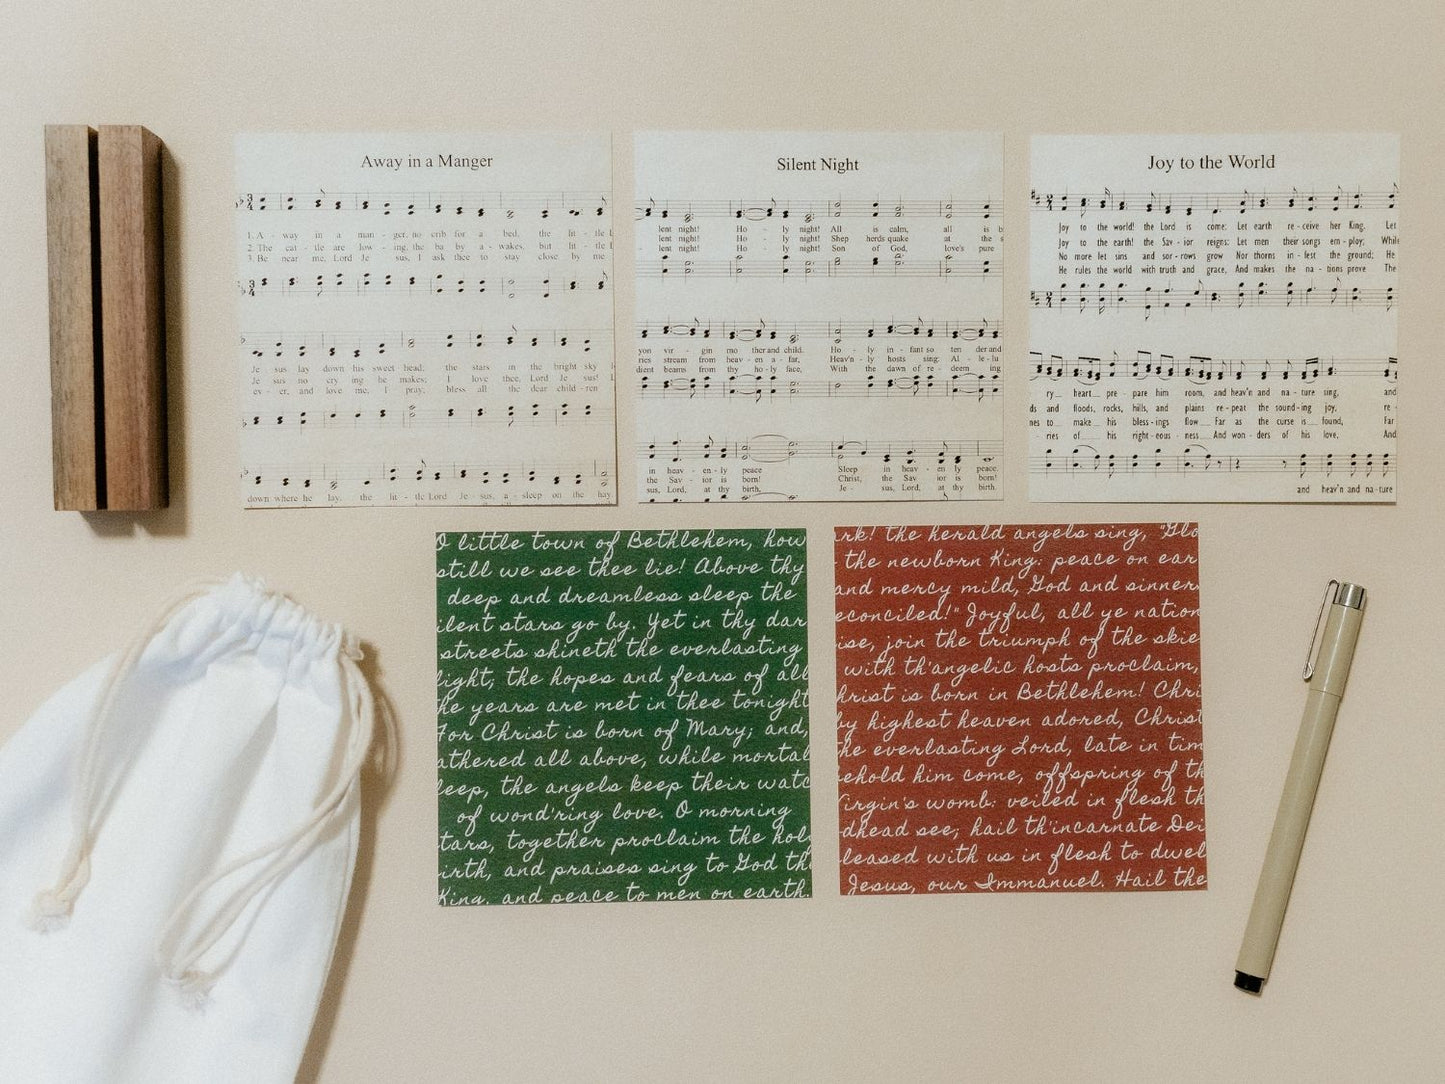 Away in a Manger
1. A - way in a man - ger, no crib for a bed, the lit - tle L
2. The cat - tle are low - ing, the ba by a - wakes, but lit - tle L
3. Be near me, Lord Je sus, I ask thee to stay close by me
Je sus lay down his sweet head; the stars in the bright sky
Je sus no cry ing he makes; I love thee, Lord Je sus! L
ev - er, and love me, I pray; bless all the dear child - ren
down where he lay, the lit - tle Lord Je - sus, a - sleep on the hay
Silent Night
lent night! Ho - ly night! All is calm, all is b
lent night! Ho - ly night! Shep herds quake at the s
lent night! Ho - ly night! Son of God, love's pure
yon vir - gin mo ther and child. Ho - ly in - fant so ten der and
ries stream from heav - en a - far, Heav'n - ly hosts sing: Al - le - lu
dient beams from thy ho - ly face, With the dawn of re - deem ing
in heav - en - ly peace Sleep in heav - en ly peace.
the Sav - ior is born! Christ, the Sav ior is born!
sus, Lord, at thy birth, Je - sus, Lord, at thy birth.
Joy to the World
Joy to the world! the Lord is come: Let earth re - ceive her King. Let
Joy to the earth! the Sav - ior reigns: Let men their songs em - ploy; While
No more let sins and sor - rows grow Nor thorns in - fest the ground; He
He rules the world with truth and grace, And makes the na - tions prove The
ry heart pre - pare him room, and heav'n and na - ture sing, and
ds and floods, rocks, hills, and plains re - peat the sound - ing joy, re -
nes to make his bless - ings flow Far as the curse is found, Far
- ries of his right - eous - ness And won - ders of his love, And
and heav'n and na - ture
O little town of Bethlehem, how
still we see thee lie! Above thy
deep and dreamless sleep the
ilent stars go by. Yet in thy dar
streets shineth the everlasting
light, the hopes and fears of all
he years are met in thee tonight
For Christ is born of Mary; and,
athered all above, while mortal
leep, the angels keep their watc
of wond'ring love. O morning
tars, together proclaim the hol
irth, and praises sing to God th
King, and peace to men on earth.
ark! the herald angels sing, "Glo
the newborn King: peace on ear
and mercy mild, God and sinner
econciled!" Joyful, all ye nation
ise, join the triumph of the skie
with th'angelic hosts proclaim,
hrist is born in Bethlehem! Chri
by highest heaven adored, Christ
the everlasting Lord, late in tim
ehold him come, offspring of th
Virgin's womb: veiled in flesh th
dhead see; hail th'incarnate Dei
leased with us in flesh to dwel
Jesus, our Immanuel. Hail the